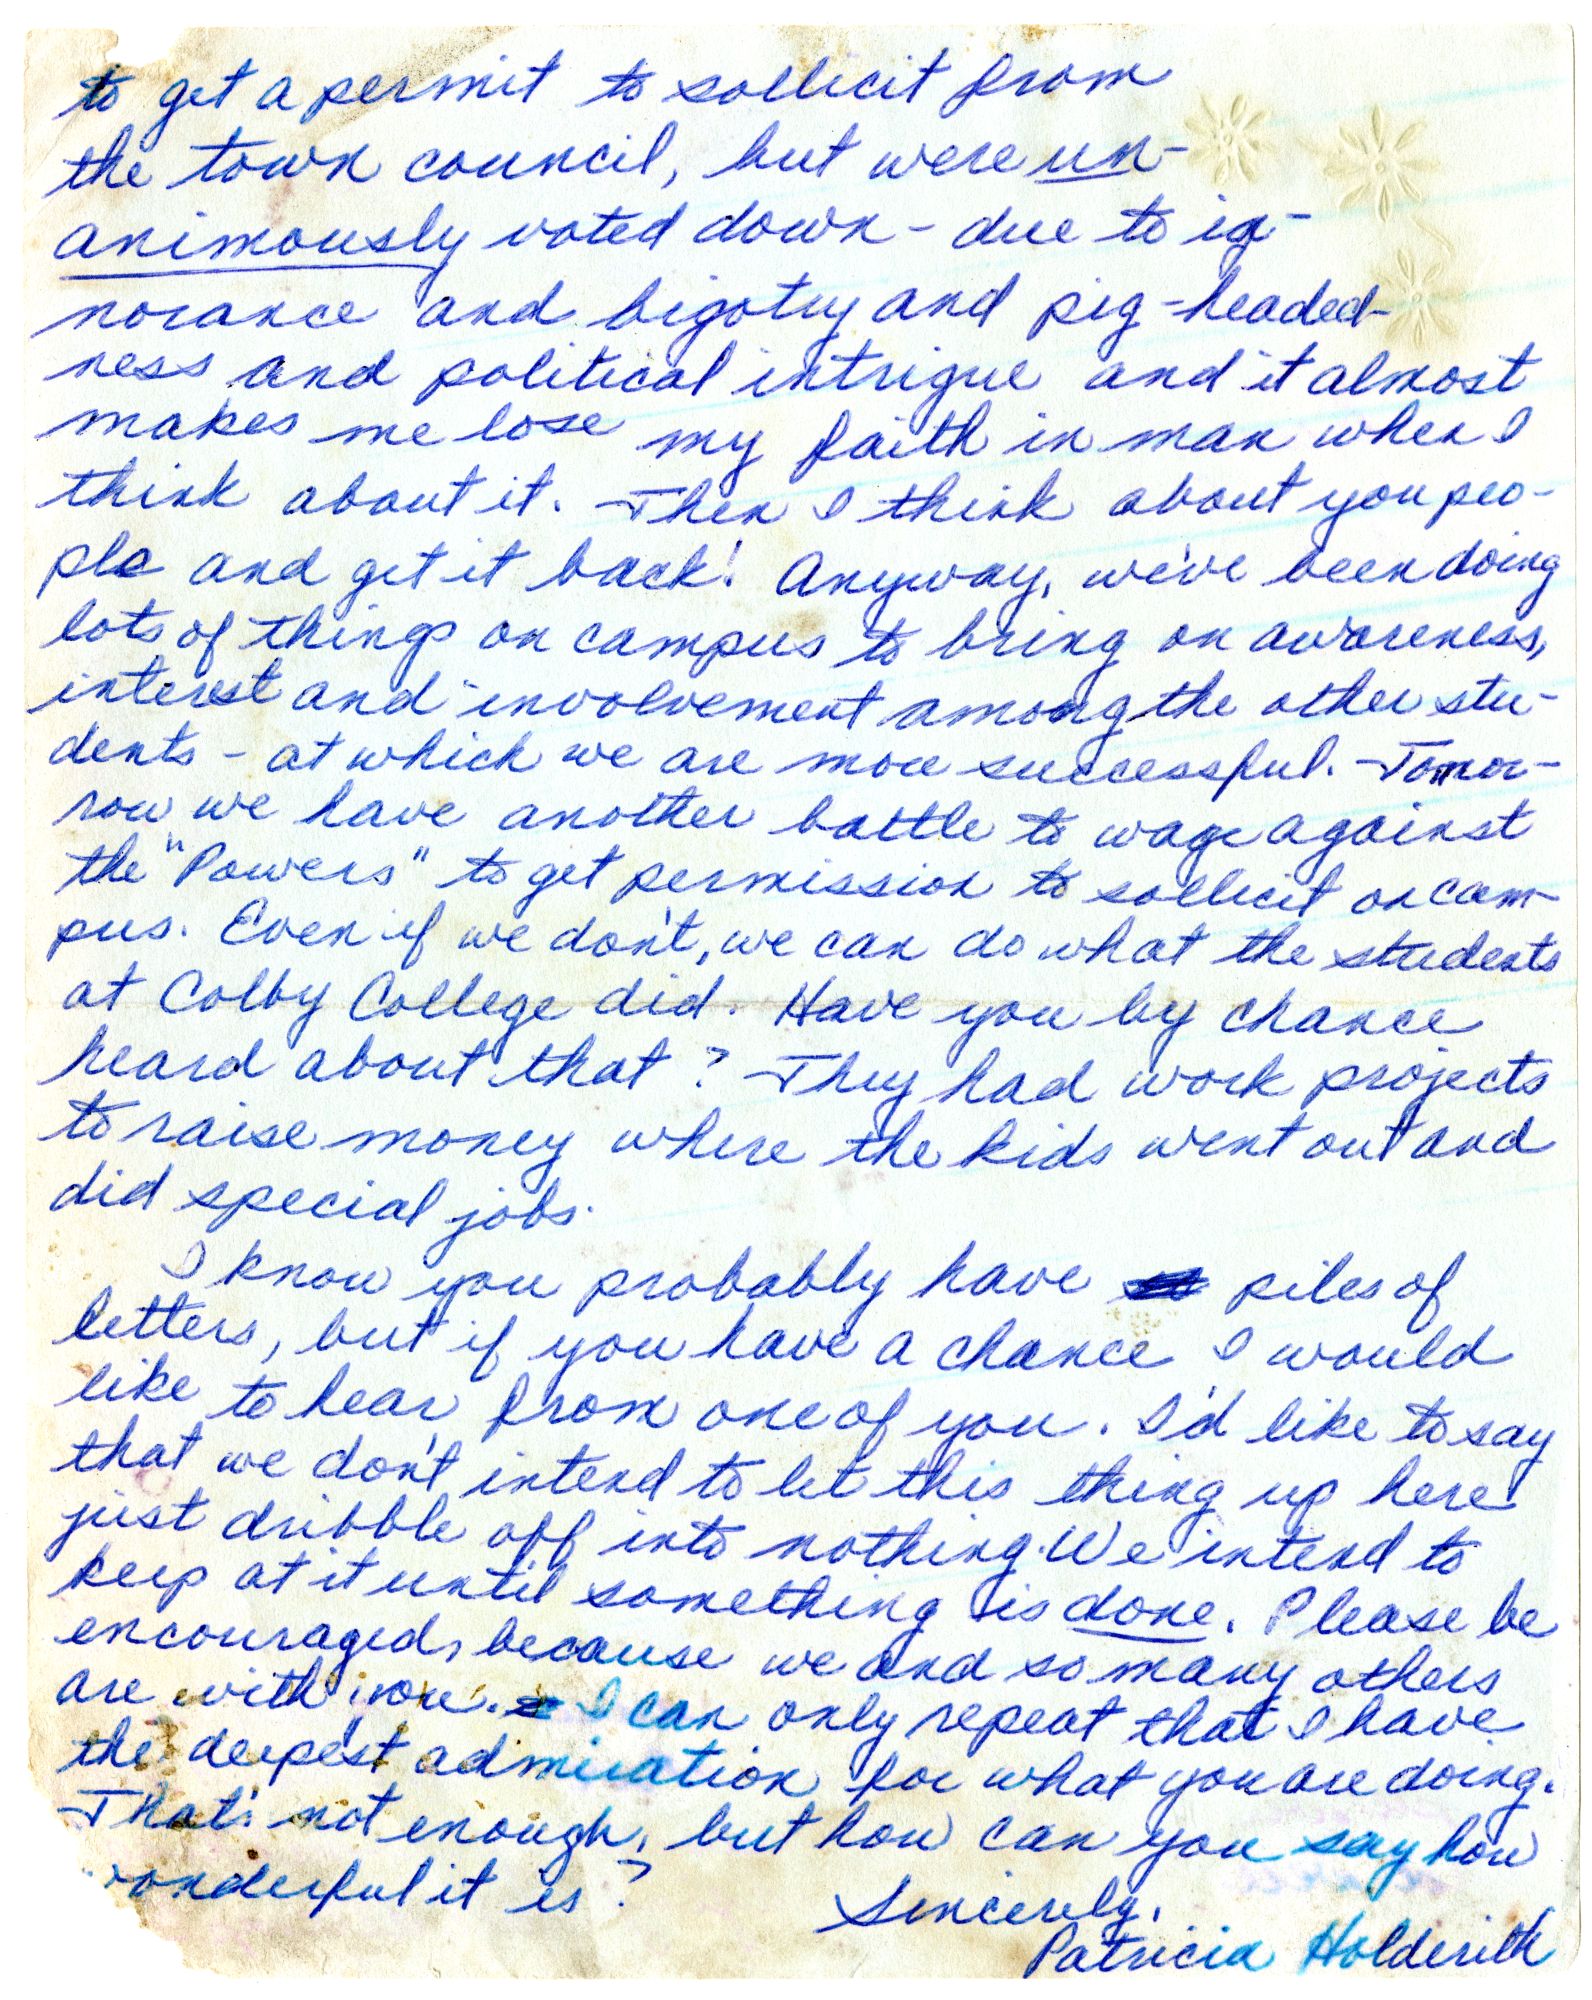 to get a permit to sollicit from
the town council, but were un-
animously voted down - due to ig-
norance and bigotry and pig-headed-
ness and political intrigue and it almost
makes me lose my faith in man when I
think about it. Then I think about you peo-
ple and get it back! Anyway, we've been doing
lots of things on campus to bring on awareness,
interest and involvement among the other stu-
dents - at which we are more successful. Tomor-
row we have another battle to wage against
the "Powers" to get permission to sollicit on cam-
pus. Even if we don't, we can do what the students
at Colby College did. Have you by chance
heard about that? They had work projects
to raise money where the kids went out and
did special jobs.
I know you probably have piles of
letters, but if you have a chance I would
like to hear from one of you. I'd like to say
that we don't intend to let this thing up here
just dribble off into nothing. We intend to
keep at it until something is done. Please be
encouraged, because we and so many others
are with you. I can only repeat that I have
the deepest admiration for what you are doing.
That's not enough, but how can you say how
wonderful it is?
Sincerely,
Patricia Holderith